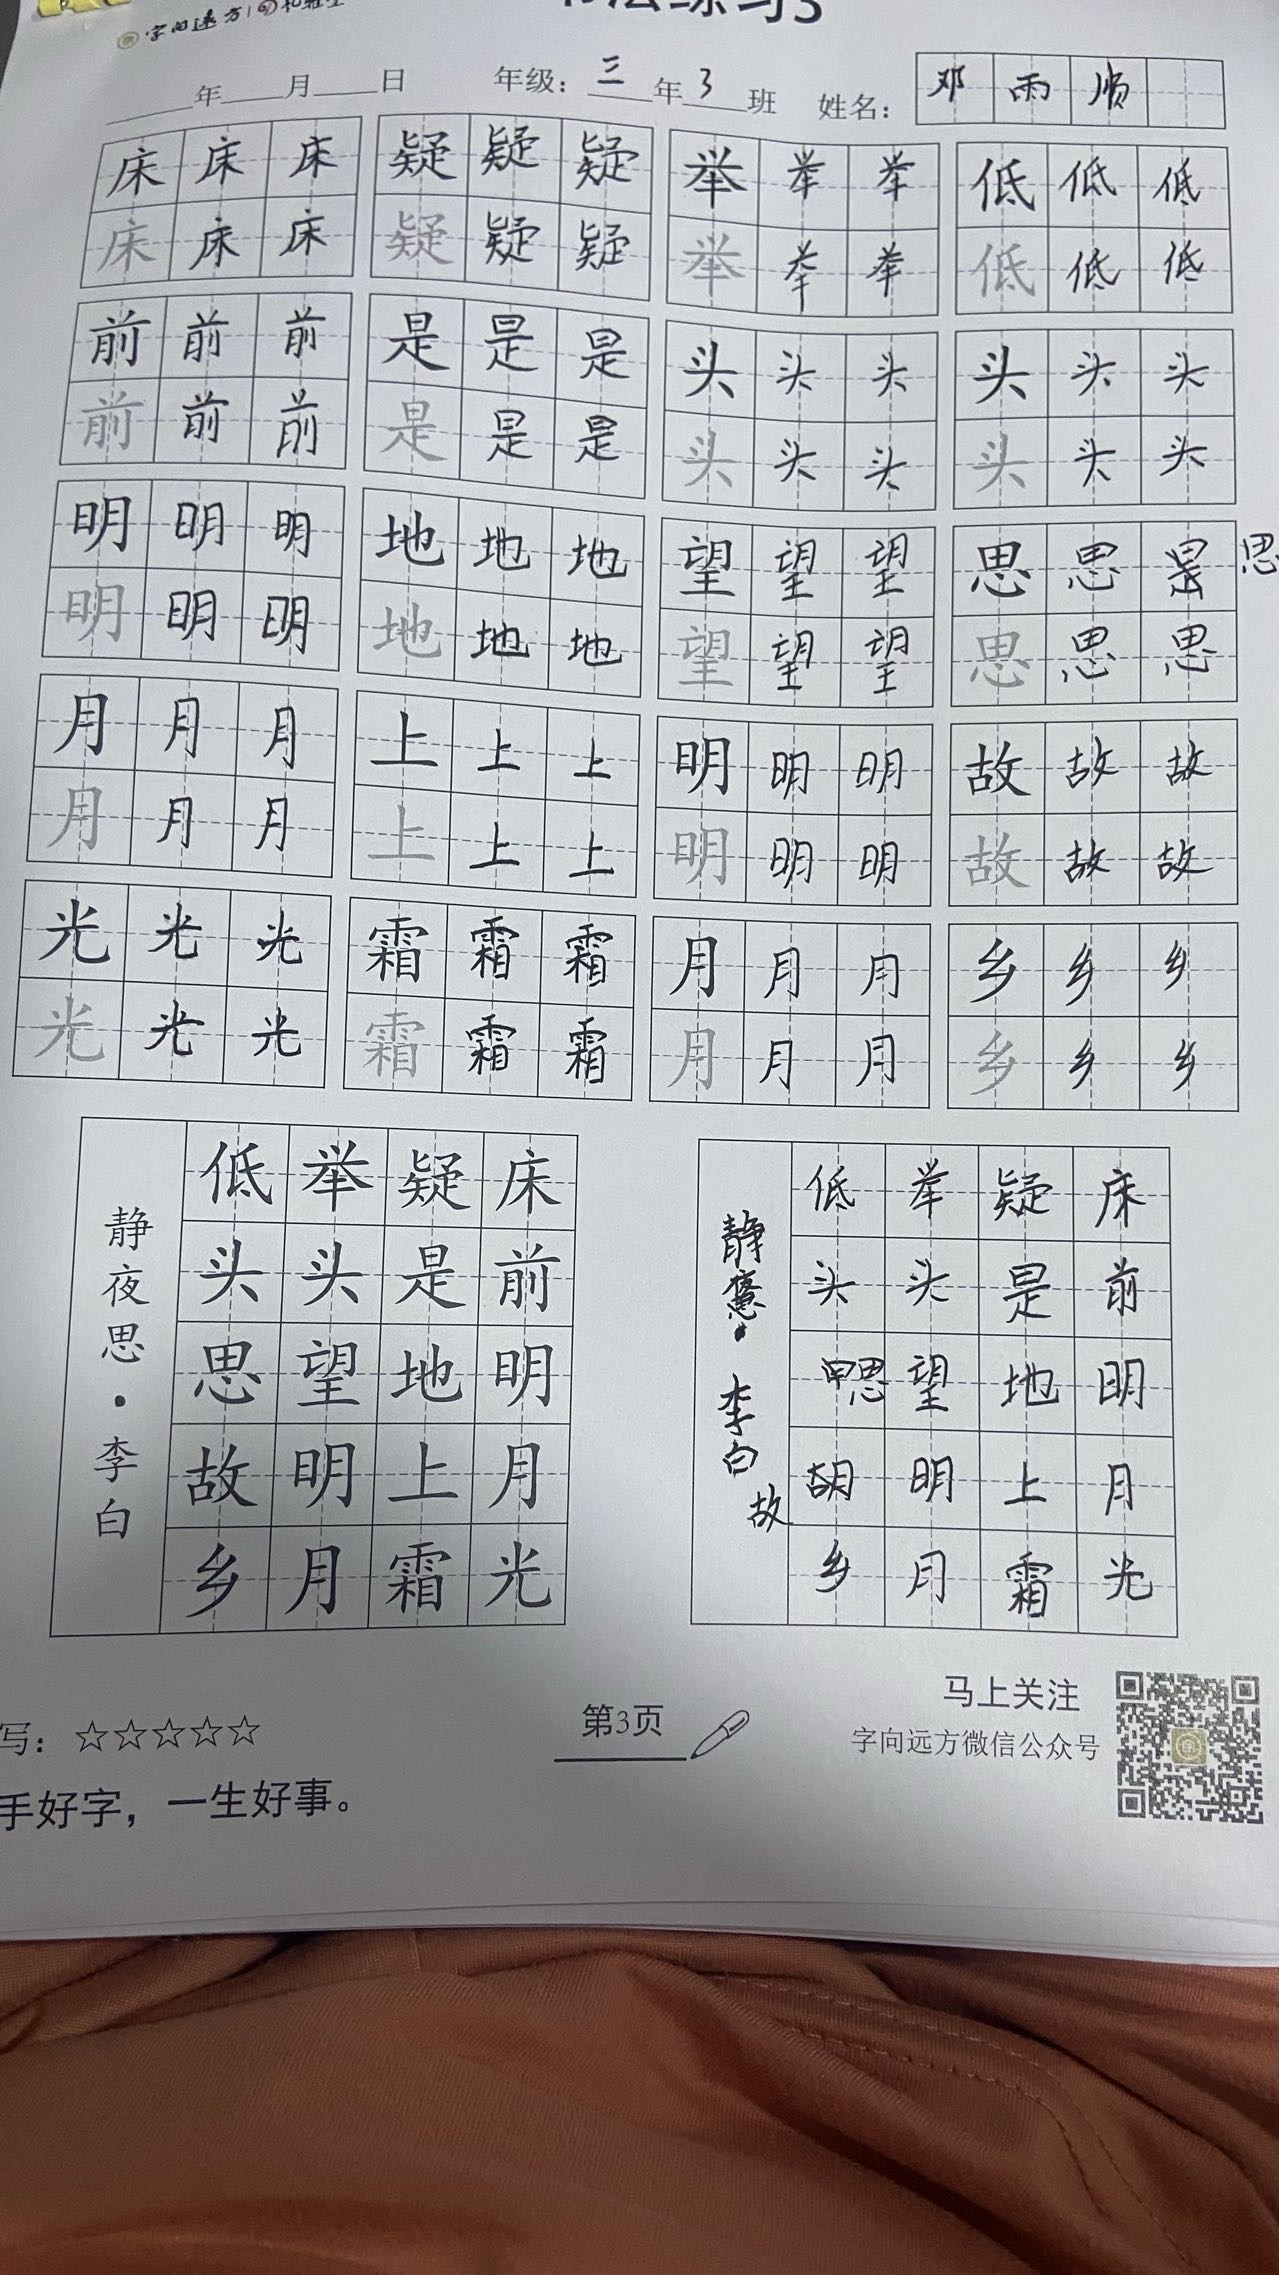 字向远方
书法练习3
年 月 日 年级：三年3班 姓名：邓雨顺
床床床 疑疑疑 举举举 低低低
床床床 疑疑疑 举举举 低低低
前前前 是是是 头头头 头头头
前前前 是是是 头头头 头头头
明明明 地地地 望望望 思思 思
明明明 地地地 望望望 思思思
月月月 上上上 明明明 故故故
月月月 上上上 明明明 故故故
光光光 霜霜霜 月月月 乡乡乡
光光光 霜霜霜 月月月 乡乡乡
床前明月光
疑是地上霜
举头望明月
低头思故乡
静夜思·李白
床前明月光
疑是地上霜
举头望明月
低头思胡乡
故
静 · 李白
写：☆☆☆☆☆
第3页
马上关注
字向远方微信公众号
手好字，一生好事。